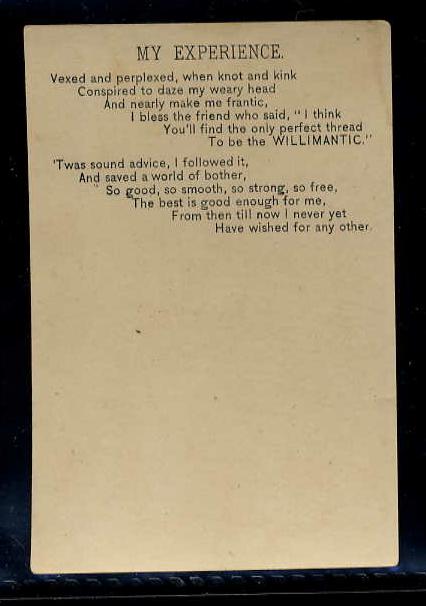 MY EXPERIENCE.
Vexed and perplexed, when knot and kink
Conspired to daze my weary head
And nearly make me frantic,
I bless the friend who said, "I think
You'll find the only perfect thread
To be the WILLIMANTIC."
'Twas sound advice, I followed it,
And saved a world of bother,
" So good, so smooth, so strong, so free,
The best is good enough for me,
From then till now I never yet
Have wished for any other.